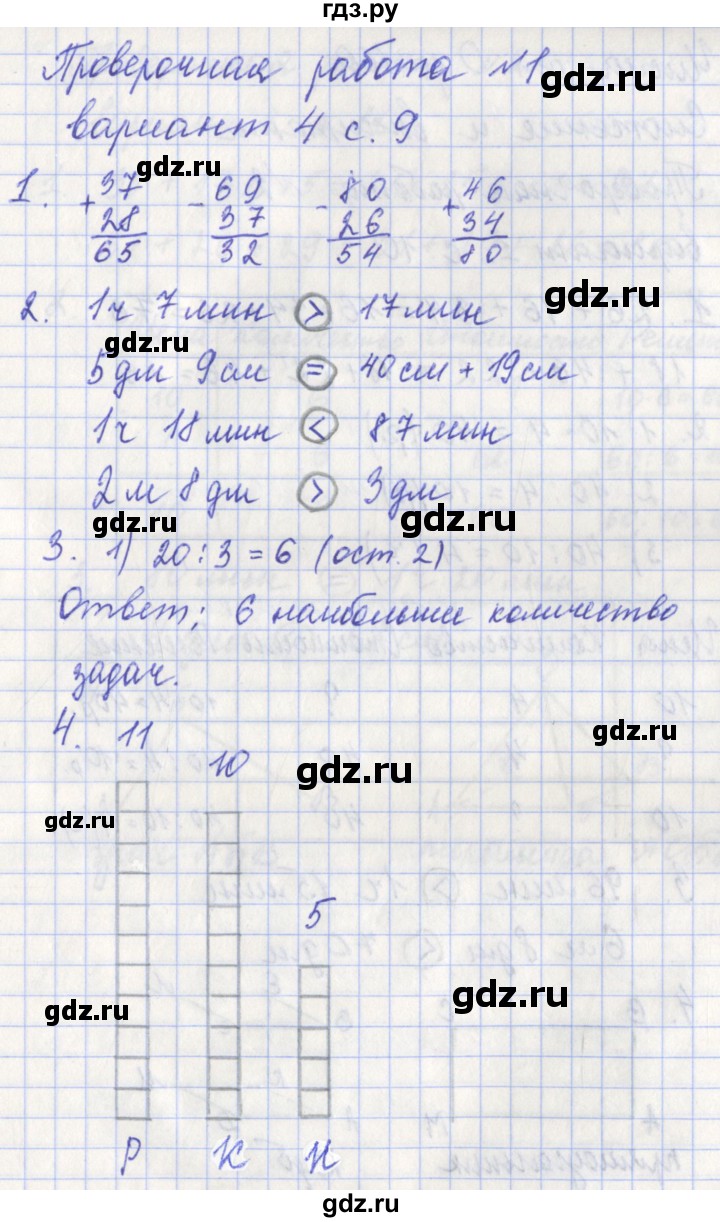 гдз.ру
Проверочная работа №1
gdz.ru
вариант 4 с. 9
gdz.ru
1. +37 -69 -80 +46
28 37 26 34
gdz.ru
65 32 54 80
2. 1ч 7 мин > 17 мин
gdz.ru
gdz.ru
5 дм 9 см = 40 см + 19 см
1ч 18 мин < 87 мин
2 м 8 дм > 3 дм
gdz.ru
gdz.ru
3. 1) 20 : 3 = 6 (ост. 2)
Ответ; 6 наибольшее количество
задач.
gdz.ru
4. 11 10 5
gdz.ru
gdz.ru
gdz.ru
gdz.ru
Р К Н
gdz.ru